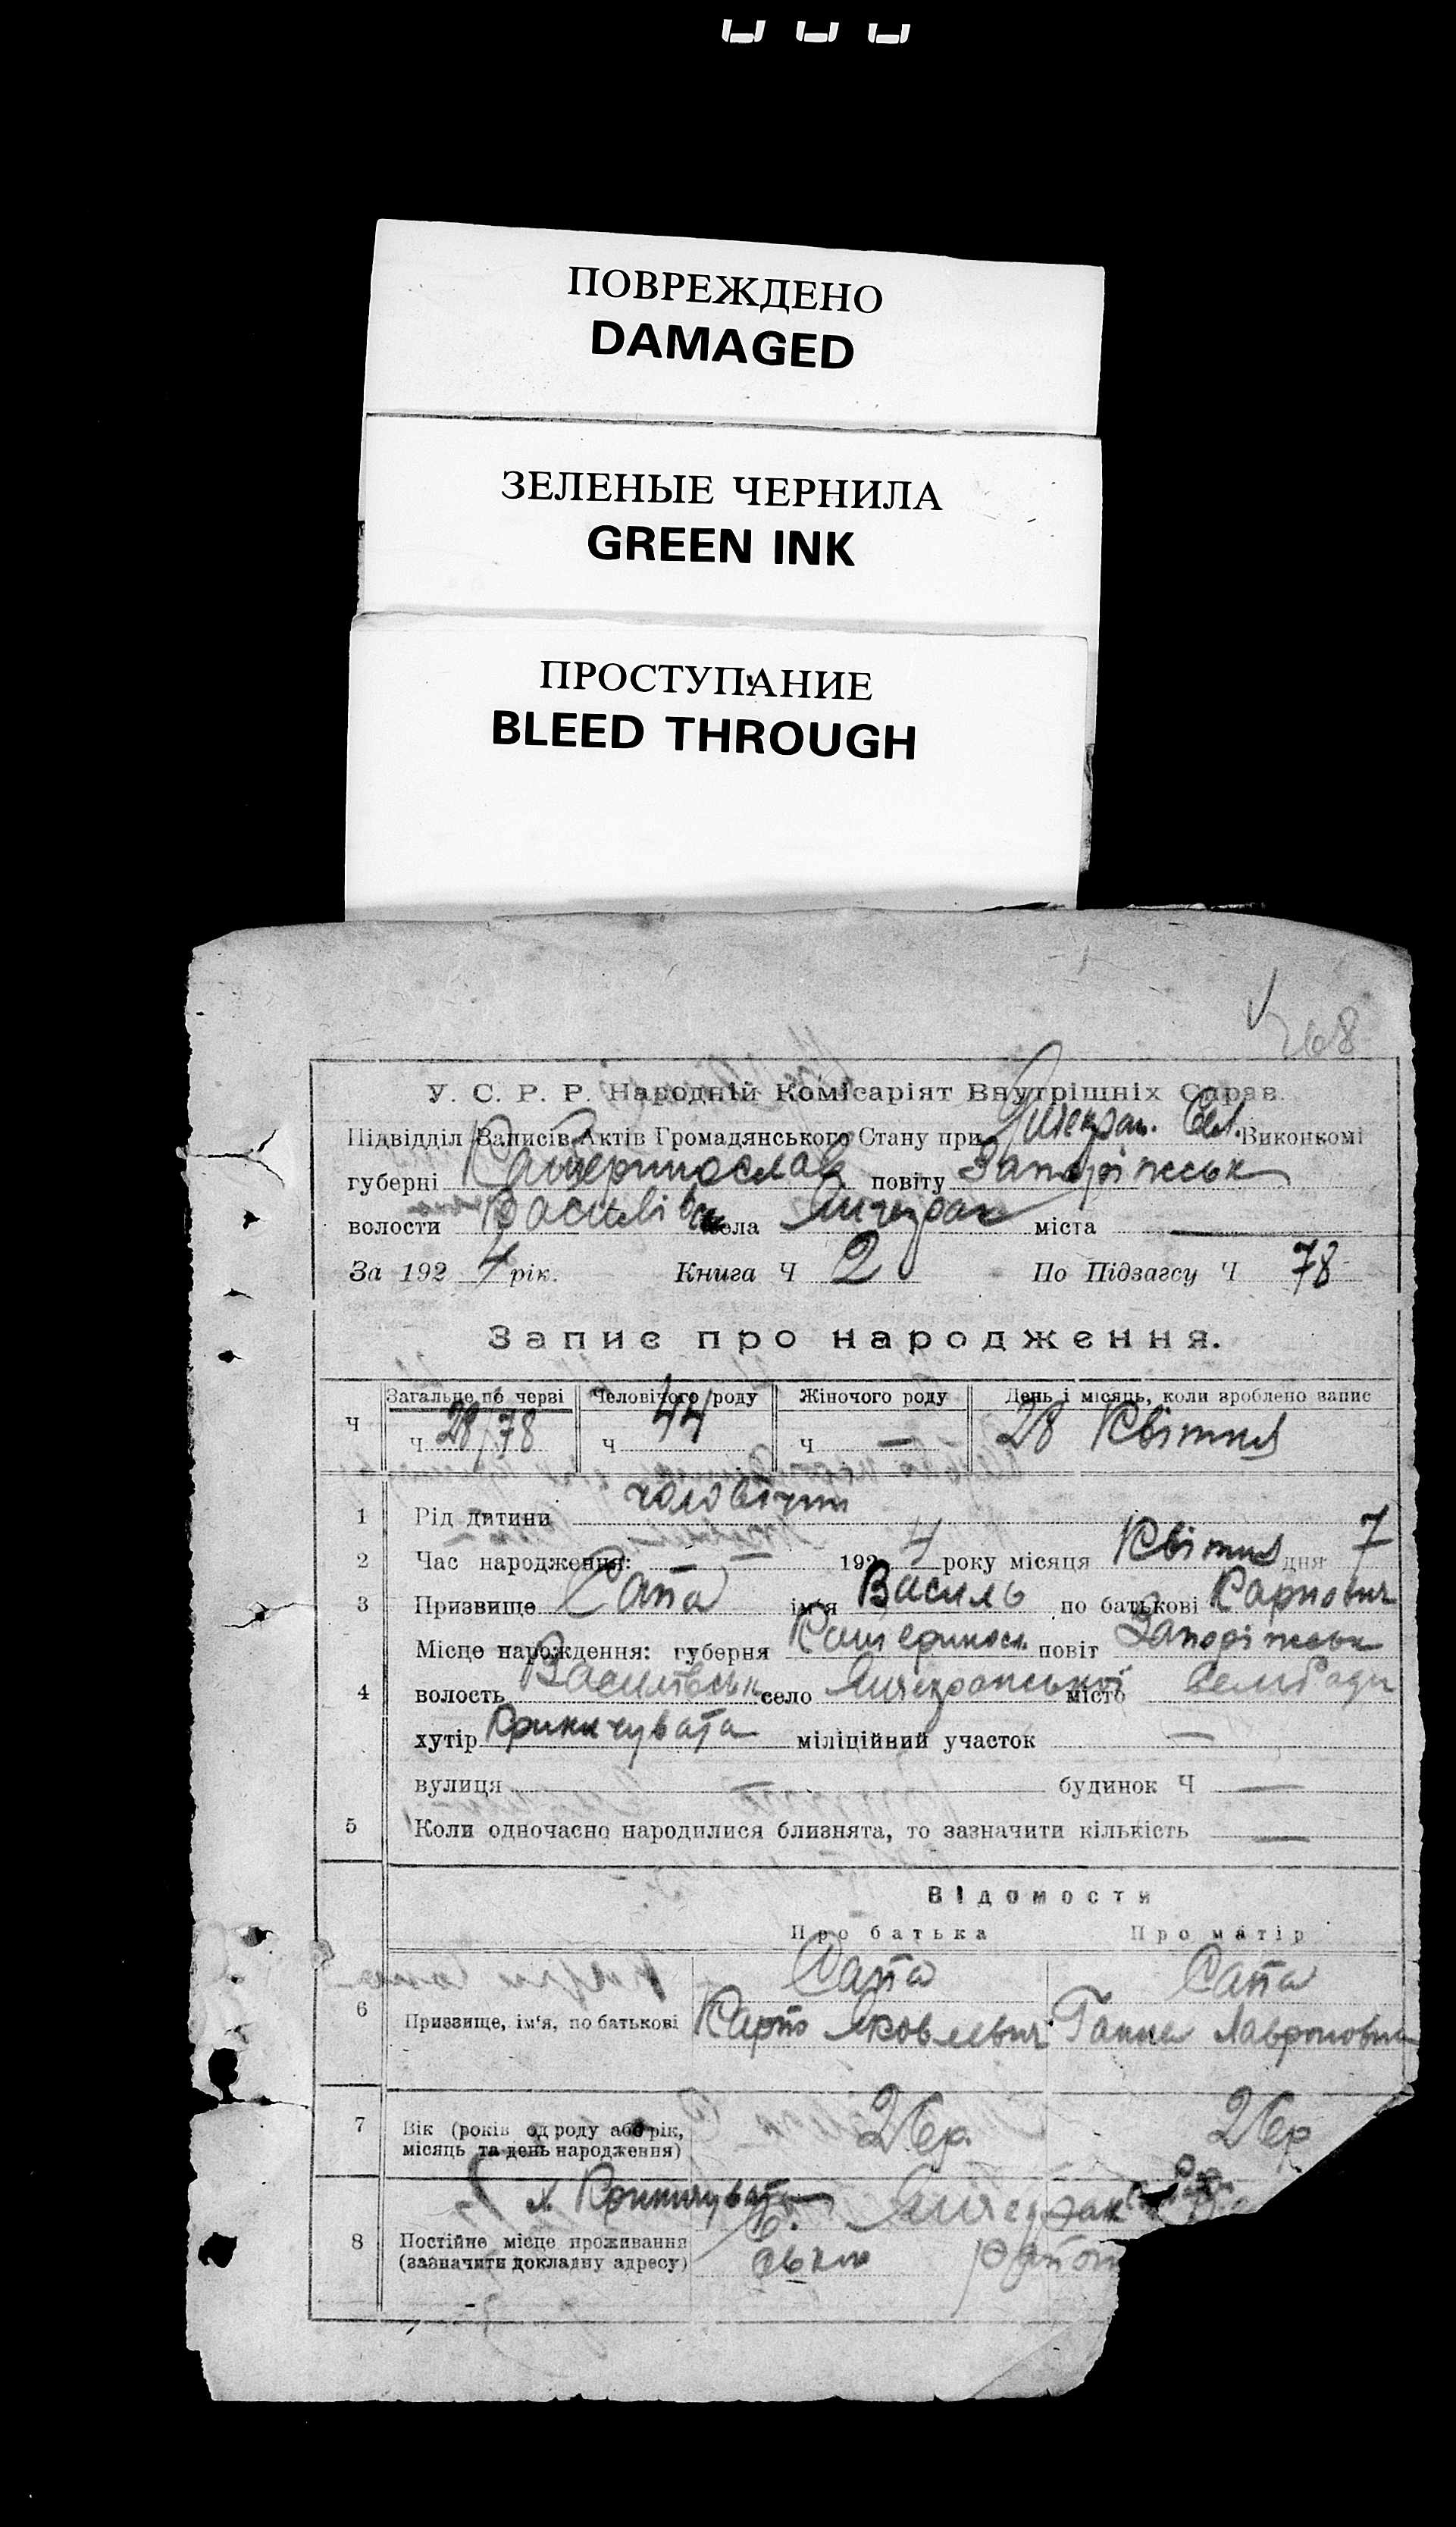 ПОВРЕЖДЕНО
DAMAGED
ЗЕЛЕНЫЕ ЧЕРНИЛА
GREEN INK
ПРОСТУПАНИЕ
BLEED THROUGH
268
У. С. Р. Р. Народній Комісаріят Внутрішніх Справ.
Підвідділ Записів Актів Громадянського Стану при Янчекрак. Сел. Виконкомі
губерні Катеринослав повіту Запоріжськ
волости Василівськ села Янчекрак міста
За 1924 рік. Книга Ч 2 По Підзагсу Ч 78
Запис про народження.
Загальне по черві Человічого роду Жіночого роду День і місяць, коли зроблено запис
Ч Ч 28/78 Ч 44 Ч — 28 Квітня
1 Рід дитини чоловічий
2 Час народження: — 1924 року місяця Квітня дня 7
3 Призвище Сапа ім'я Василь по батькові Карпович
Місце народження: губерня Катериносл. повіт Запоріжськ
4 волость Василівськ село Янчекракської місто Сельради
хутір Криничувата міліційний участок —
вулиця — будинок Ч —
5 Коли одночасно народилися близнята, то зазначити кількість —
Відомости
Про батька Про матір
Сапа Сапа
6 Призвище, ім'я, по батькові Карпо Яковлевич Ганна Лавроновна
7 Вік (років од роду або рік, місяць та день народження) 26 р. 26 р
х. Криничувата
8 Постійне місце проживання С. Янчекрак
(зазначити докладну адресу)